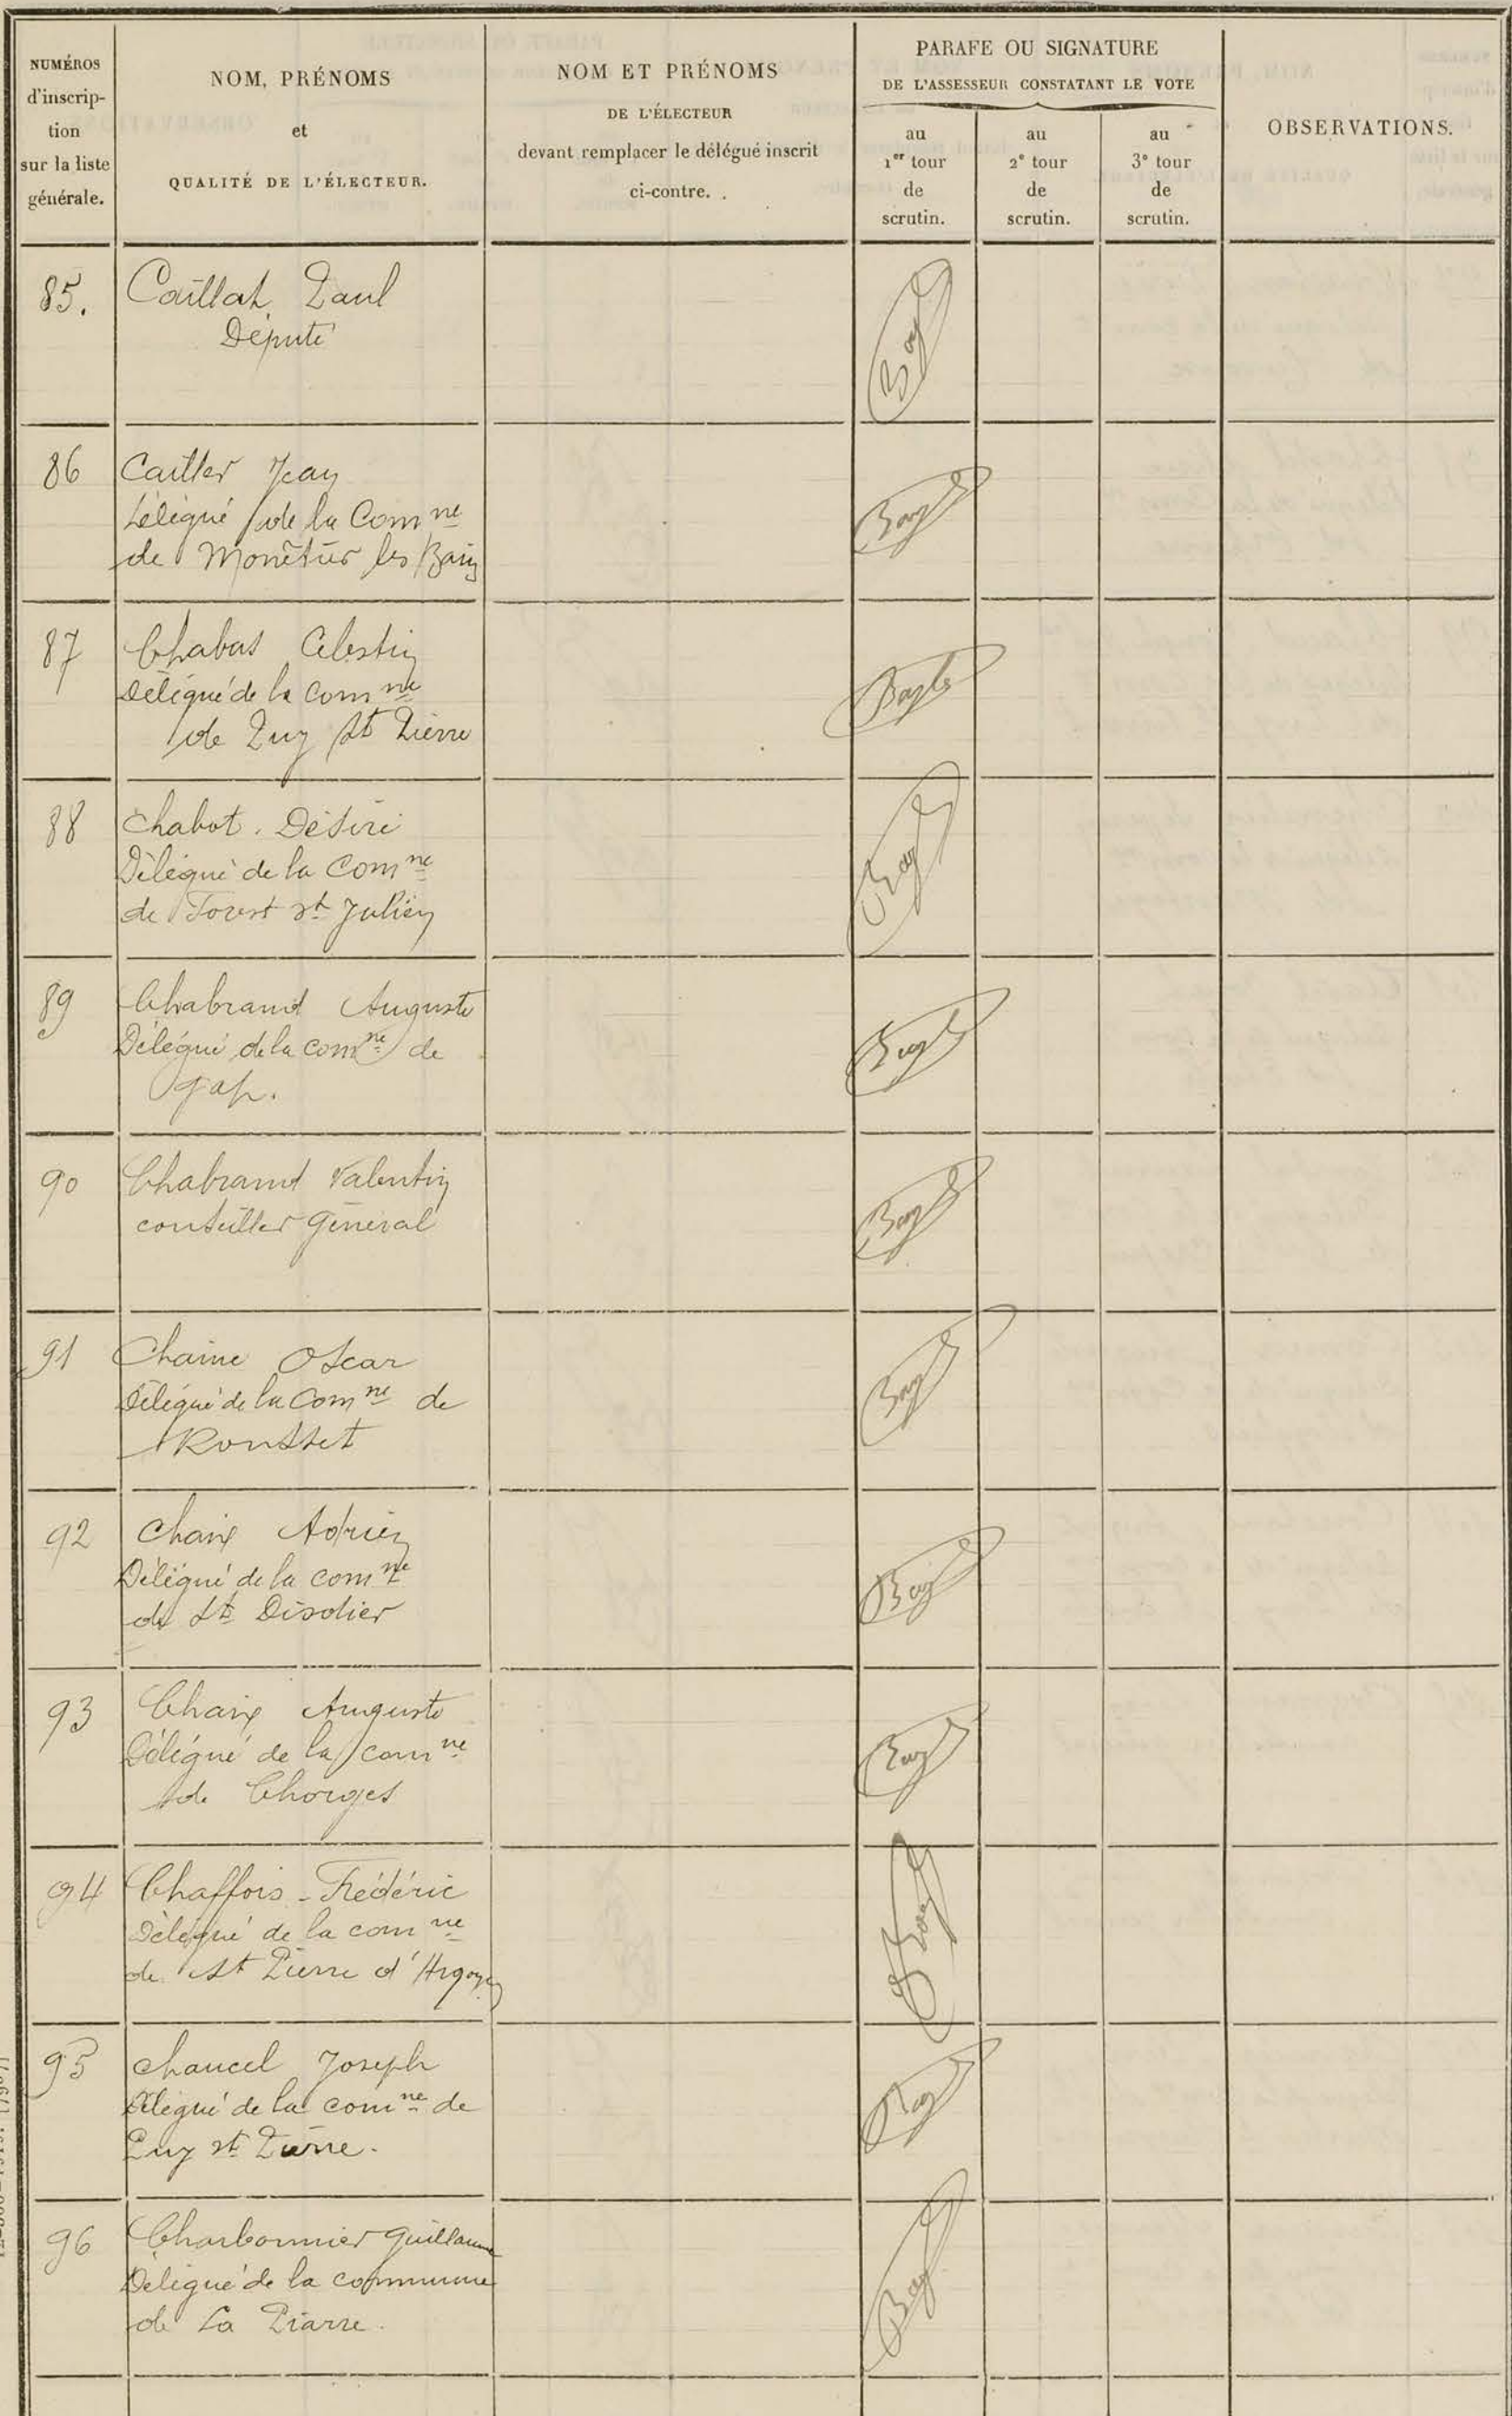 NUMÉROS
d'inscrip-
tion
sur la liste
générale.
NOM, PRÉNOMS
et
QUALITÉ DE L'ÉLECTEUR.
NOM ET PRÉNOMS
DE L'ÉLECTEUR
devant remplacer le délégué inscrit
ci-contre.
PARAFE OU SIGNATURE
DE L'ASSESSEUR CONSTATANT LE VOTE
au
1er tour
de
scrutin.
au
2e tour
de
scrutin.
au
3e tour
de
scrutin.
OBSERVATIONS.
85. Caillat Paul
Député
86 Cailler Jean
Délégué de la Comne
de Monêtier les Bains
87 Chabas Célestin
Délégué de la Comne
de Puy St Pierre
88 Chabot. Désiré
Délégué de la Comne
de Forest St Julien
89 Chabrand Auguste
Délégué de la comne de
Gap.
90 Chabrand Valentin
conseiller Général
91 Chaine Oscar
Délégué de la Comne de
Rousset
92 Chaix Adrien
Délégué de la comne
de St Disdier
93 Chaix Auguste
Délégué de la comne
de Chorges
94 Chaffois - Frédéric
Délégué de la comne
de St Pierre d'Argençon
95 Chancel Joseph
Délégué de la comne de
Puy St Pierre.
96 Charbonnier Guillaume
Délégué de la commune
de La Piarre.